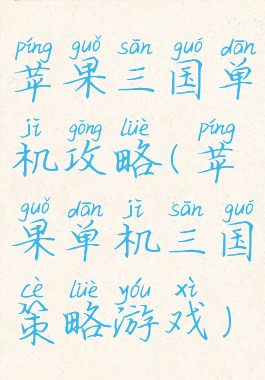 píng guǒ sān guó dān
苹果三国单
jī gōng lüè píng
机攻略(苹
guǒ dān jī sān guó
果单机三国
cè lüè yóu xì
策略游戏)